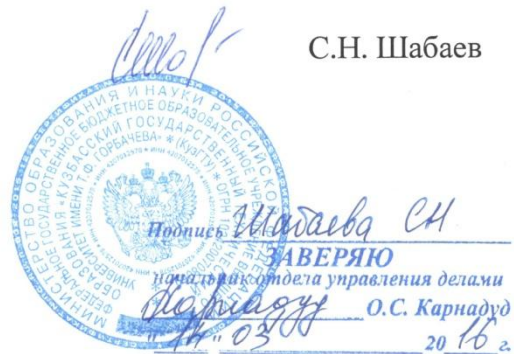 С.Н. Шабаев
МИНИСТЕРСТВО ОБРАЗОВАНИЯ И НАУКИ РОССИЙСКОЙ
ФЕДЕРАЛЬНОЕ ГОСУДАРСТВЕННОЕ БЮДЖЕТНОЕ ОБРАЗОВАТЕЛЬНОЕ
«КУЗБАССКИЙ ГОСУДАРСТВЕННЫЙ
УНИВЕРСИТЕТ ИМЕНИ Т.Ф. ГОРБАЧЕВА» * (КузГТУ) * ОГРН
Подпись Шабаева СН
ЗАВЕРЯЮ
начальник отдела управления делами
Карнадуд О.С. Карнадуд
"14" 03 2016 г.